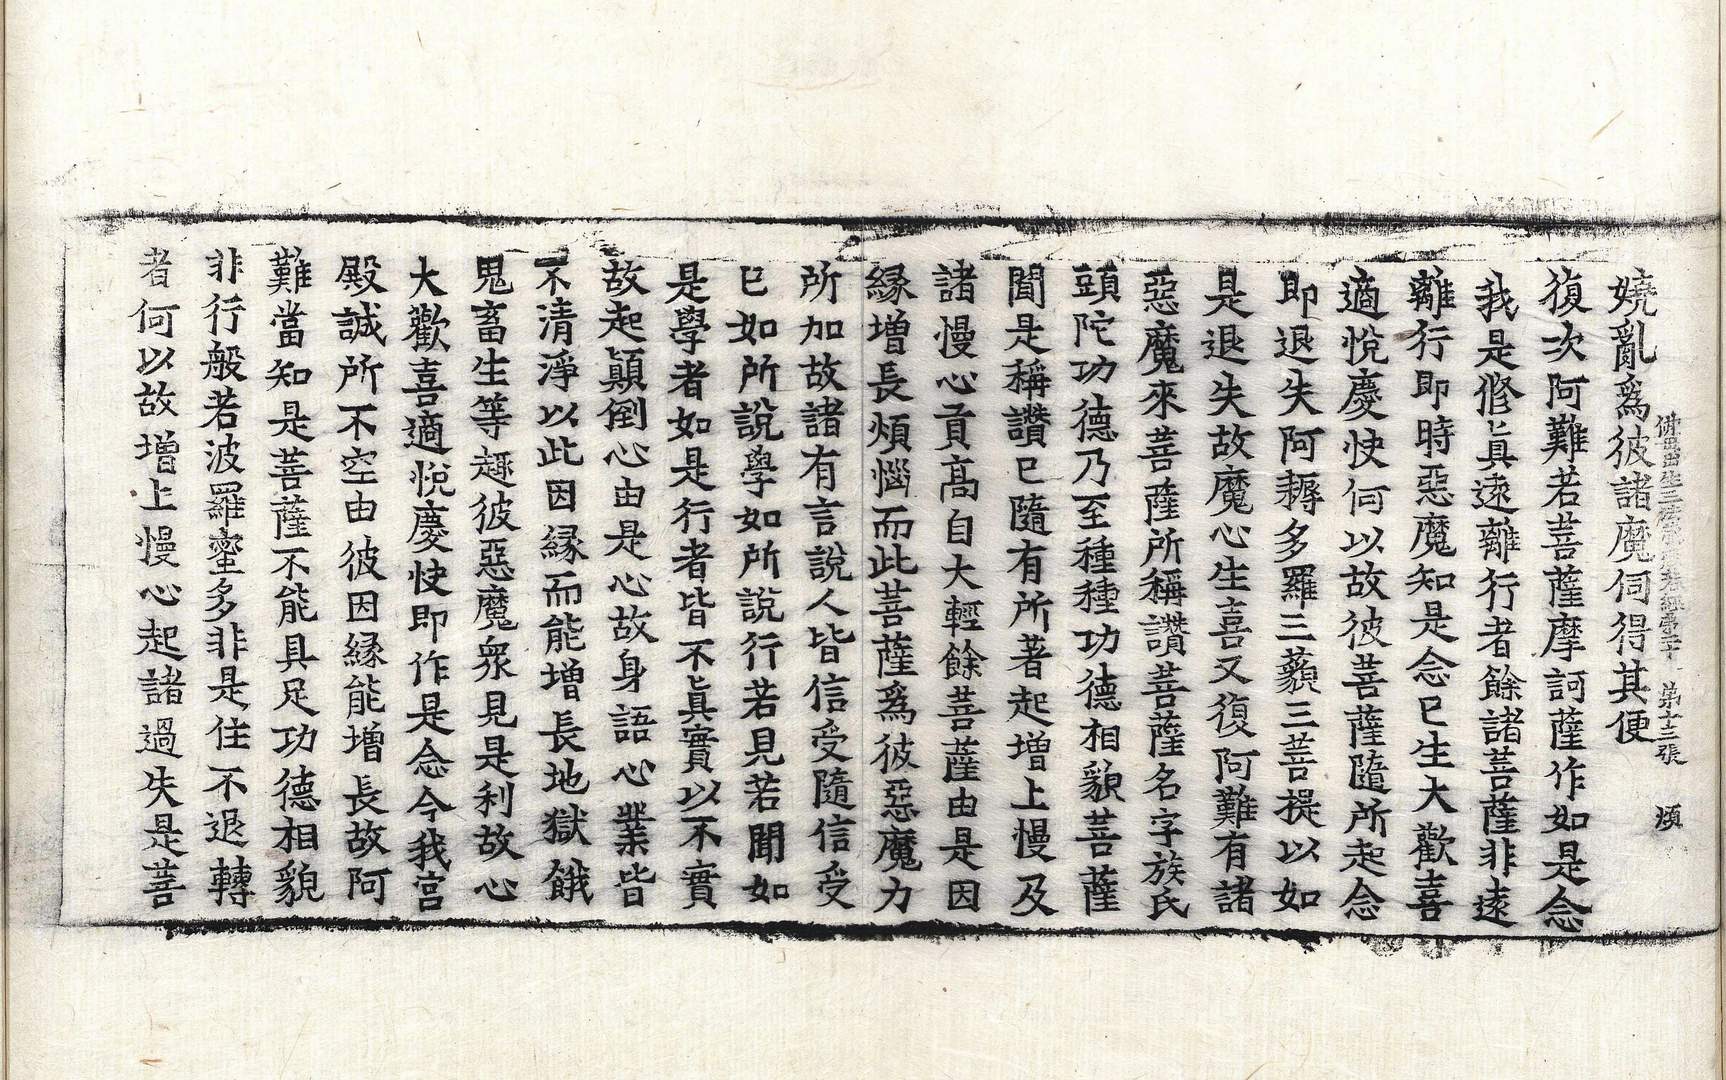 嬈亂爲彼諸魔伺得其便
佛母出生三法藏般若經卷二十 第十三張 煩
復次阿難若菩薩摩訶薩作如是念
我是修眞遠離行者餘諸菩薩非遠
離行即時惡魔知是念已生大歡喜
適悅慶快何以故彼菩薩隨所起念
即退失阿耨多羅三藐三菩提以如
是退失故魔心生喜又復阿難有諸
惡魔來菩薩所稱讚菩薩名字族氏
頭陀功德乃至種種功德相貌菩薩
聞是稱讚已隨有所著起增上慢及
諸慢心貢高自大輕餘菩薩由是因
緣增長煩惱而此菩薩爲彼惡魔力
所加故諸有言說人皆信受隨信受
已如所說學如所說行若見若聞如
是學者如是行者皆不眞實以不實
故起顚倒心由是心故身語心業皆
不清淨以此因緣而能增長地獄餓
鬼畜生等趣彼惡魔衆見是利故心
大歡喜適悅慶快即作是念今我宮
殿誠所不空由彼因緣能增長故阿
難當知是菩薩不能具足功德相貌
非行般若波羅蜜多非是住不退轉
者何以故增上慢心起諸過失是菩